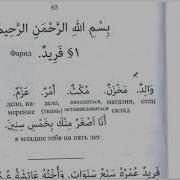 65
بِسْمِ اللهِ الرَّحْمٰنِ الرَّحِيمِ
§1 فَرِيدٌ. Фарид
وَالِدٌ. مَخْزَنٌ. مُكْثٌ. أَمْرٌ. عَزْمٌ.
дело, на- дело, находиться, магазин, отец
мерение (ткань) оставливаться склад
أَنَا أَصْغَرُ مِنْكَ بِخَمْسِ سِنِينَ.
в младше тебя на пять лет
فَرِيدٌ عُمْرُهُ سَبْعُ سَنَوَاتٍ. وَأُخْتُهُ عَائِشَةُ